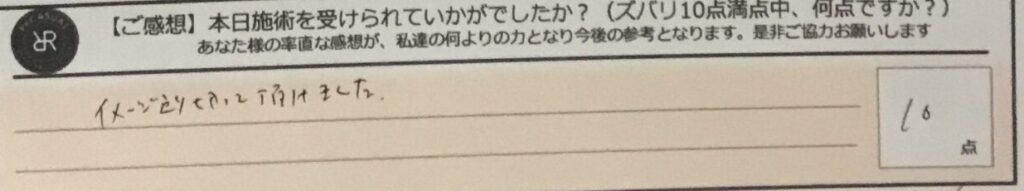 【ご感想】本日施術を受けられていかがでしたか？（ズバリ10点満点中、何点ですか？）
あなた様の率直な感想が、私達の何よりの力となり今後の参考となります。是非ご協力お願いします
イメージ通り切って頂けました。
10
点